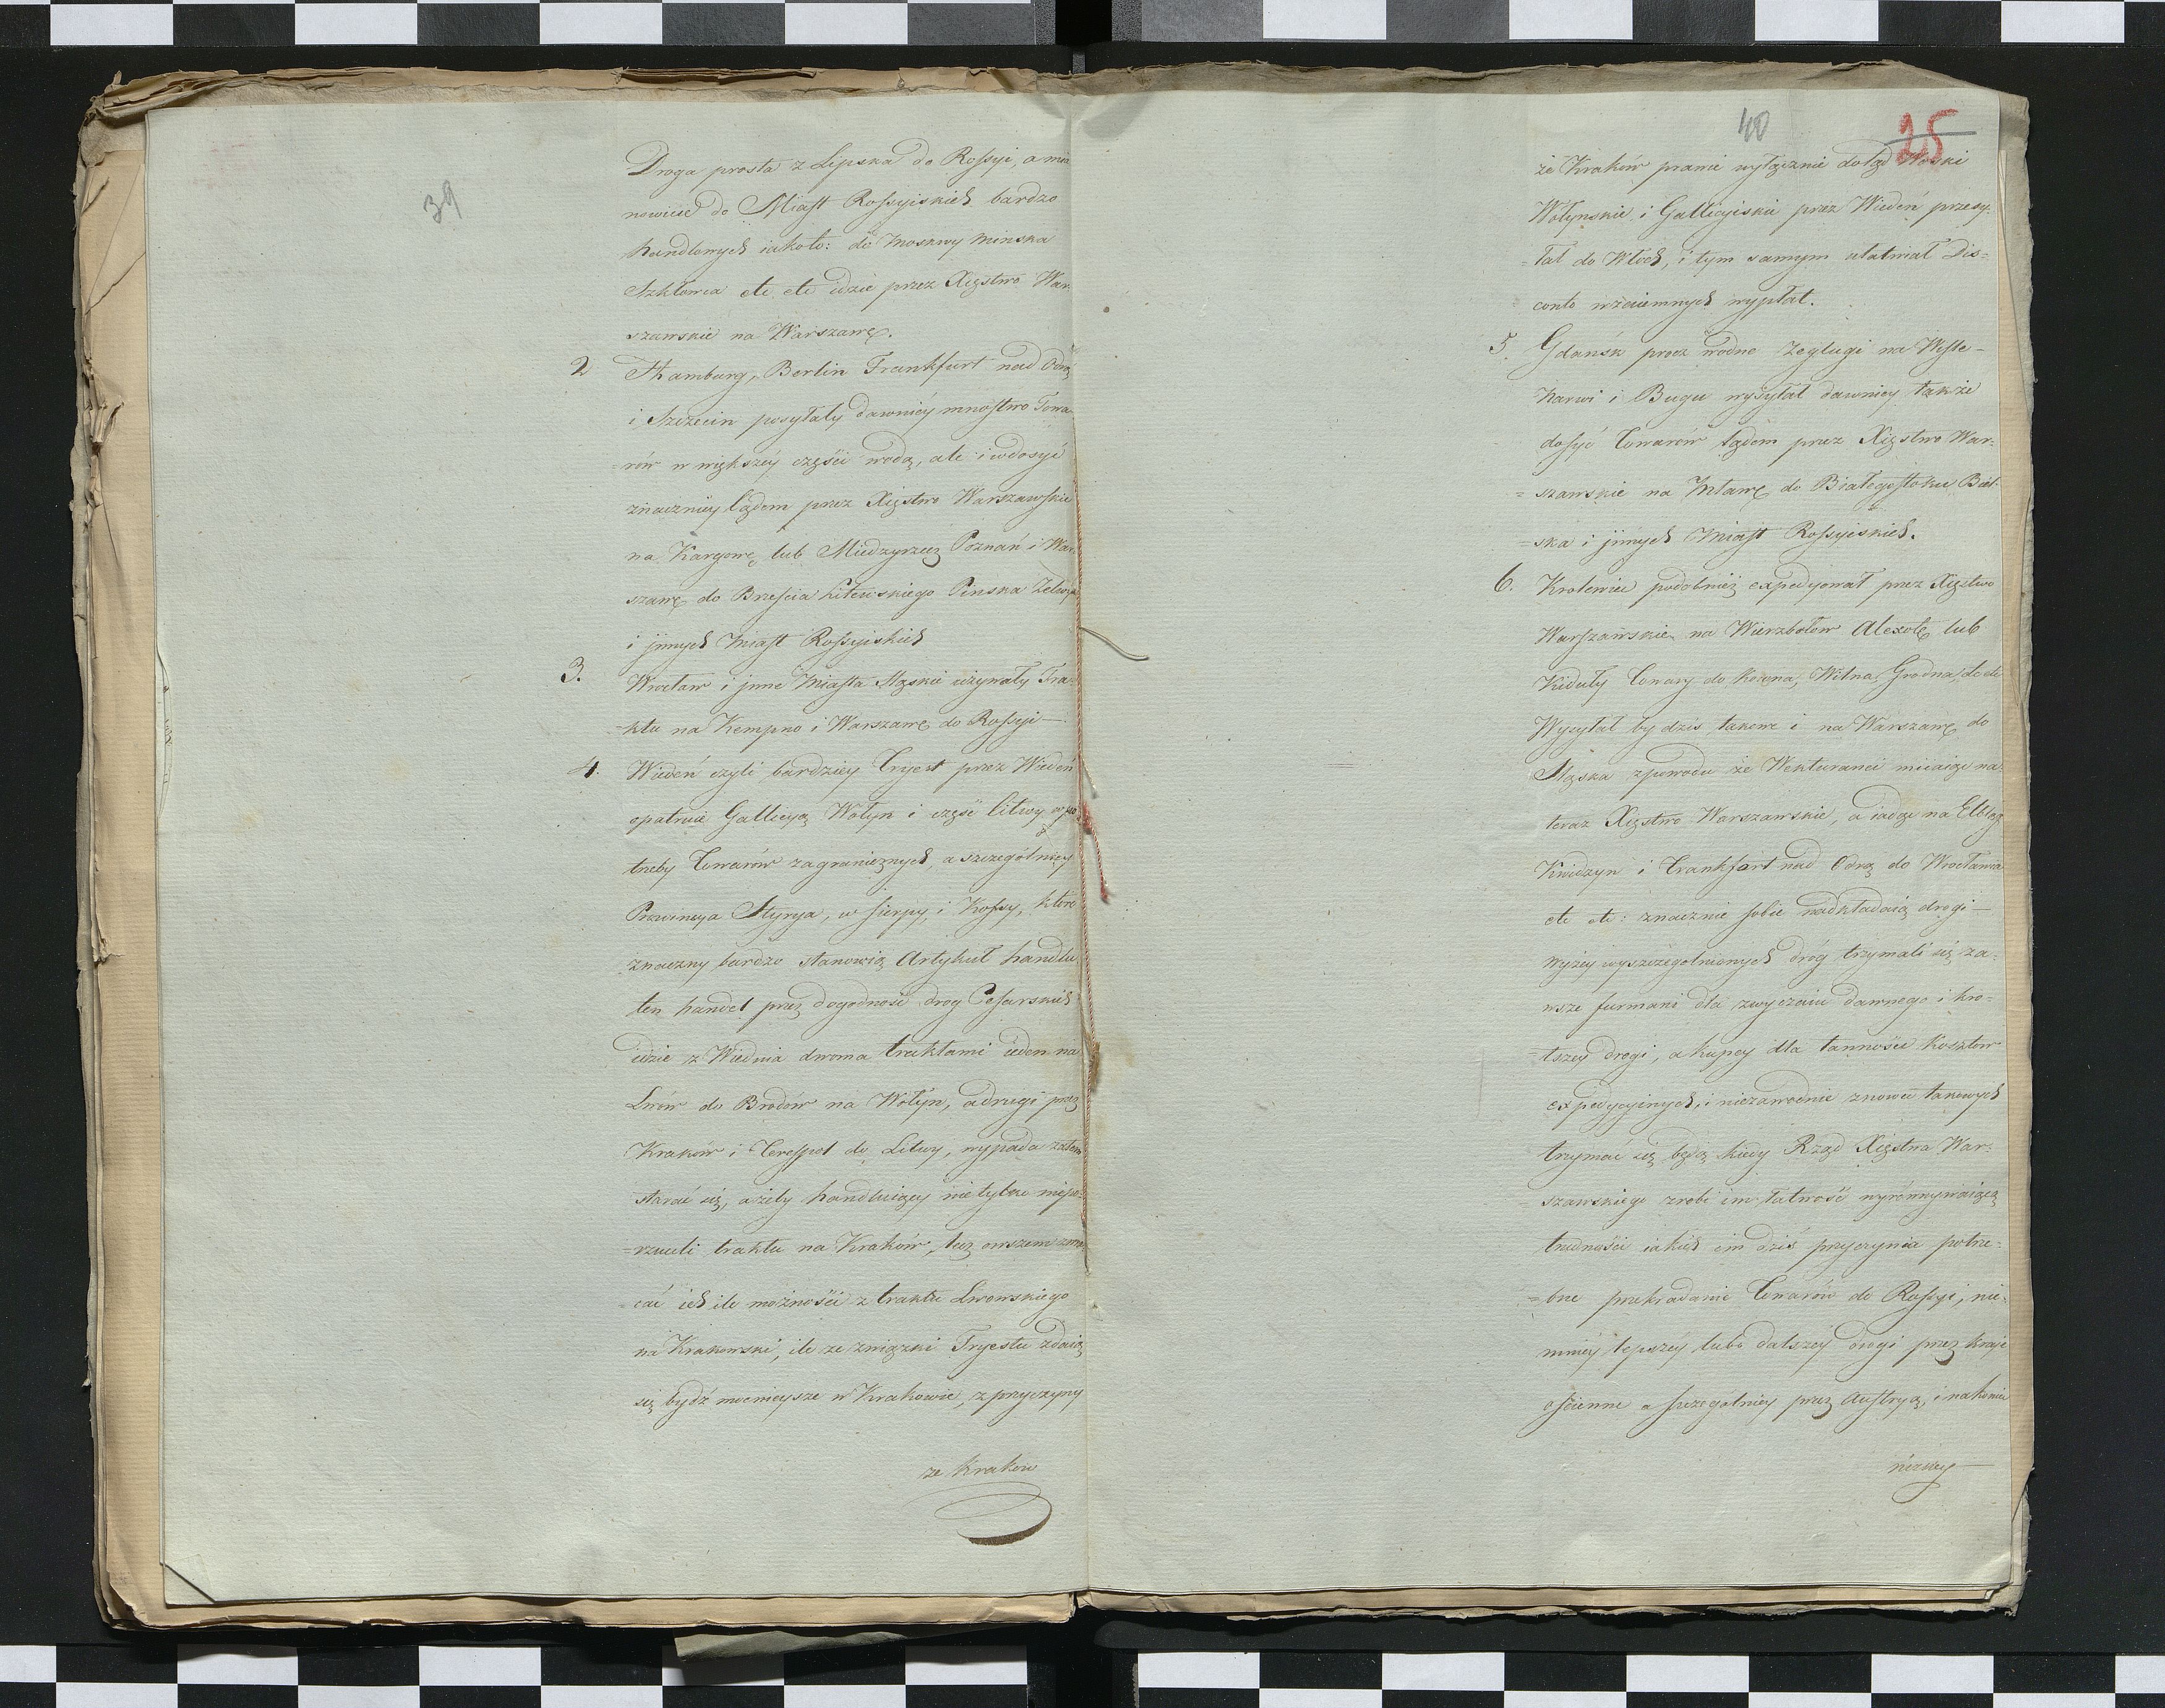 39
Droga prosta z Lipska do Rossyi, a mia
nowicie do Miast Rossyiskich bardzo
handlowych iakoto: do Moskwy Minska
Szkłowa etc etc idzie przez Xięstwo War-
szawskie na Warszawę.
2 Hamburg, Berlin Frankfurt nad Odrą
i Szczecin posyłały dawniéy mnóstwo Towa-
rów w większéy części wodą, ale i w dosyć
znaczniéy lądem przez Xięstwo Warszawskie
na Kargowę lub Miedzyrzecz Poznań i War-
szawę do Brześcia Litewskiego Pinska Zelwy
i jnnych Miast Rossyiskich
3. Wrocław i jnne Miasta Sląskie używały Tra-
=ktu na Kempno i Warszawę do Rossyi—
4. Wiedeń czyli bardziey Tryest przez Wiedeń
opatruie Gallicyą Wołyn i część Litwy w po-
trzeby Towarów zagranicznych, a szczególniey
Prowincya Styrya, w sierpy, i Kossy, które
znaczny bardzo stanowią Artykuł handlu
ten handel przez dogodność drog Cesarskich
idzie z Wiednia dwoma traktami ieden na
Lwów do Brodów na Wołyn, a drugi przez
Kraków i Terespol do Litwy, wypada zatem
starać się, ażeby handluiący nietylko niepo-
=rzucili traktu na Kraków, lecz owszem zwra-
=cać ich ile możności z traktu Lwowskiego
na Krakowski, ile ze związki Tryestu zdaią
się bydź mocnieysze w Krakowie, z przyczyny
ze Krakow
40
25
że Kraków prawie wyłącznie dotąd Woski
Wołynskie i Gallicyiskie przez Wiedeń przesy-
=łał do Włoch, i tym samym ułatwiał Dis=
conto wzaiemnych wypłat.
5. Gdańsk procz wodne Zeglugi na Wiśle—
Narwi i Bugu wysyłał dawniey także
dosyć Towarów lądem przez Xięstwo War=
=szawskie na Mławę do Białegostoku Biel-
=ska i jnnych Miast Rossyiskich.
6. Krolewiec podobnież expedyował przez Xięstwo
Warszawskie na Wierzbołow Alexotę lub
Kiduły Towary do Kowna, Wilna, Grodna, etc etc
Wysyłał by dzis takowe i na Warszawę do
Sląska zpowodu że Wekturanci miiaiąc na
teraz Xięstwo Warszawskie, a iadąc na Elbląg
Kwidzyn i Frankfurt nad Odrą do Wrocławia
etc etc: znacznie sobie nadkładaią drogi—
Wyżey wyszczegolnionych dróg trzymali się za-
wsze furmani dla zwyczaiu dawnego i kro=
=tszey drogi, a kupcy dla tanności Kosztow
expedycyinych, i niezawodnie znowu takowych
trzymać się będą kiedy Rząd Xięstwa War=
=szawskiego zrobi im łatwość wyrównywaiącą
trudności iakich im dziś przyczynia potrze=
=bne przekładanie Towarów do Rossyi, nie-
mniéy lepszéy lubo dalszéy drogi przez kraje
ościenne a szczególniey przez Austryą, i nakoniec